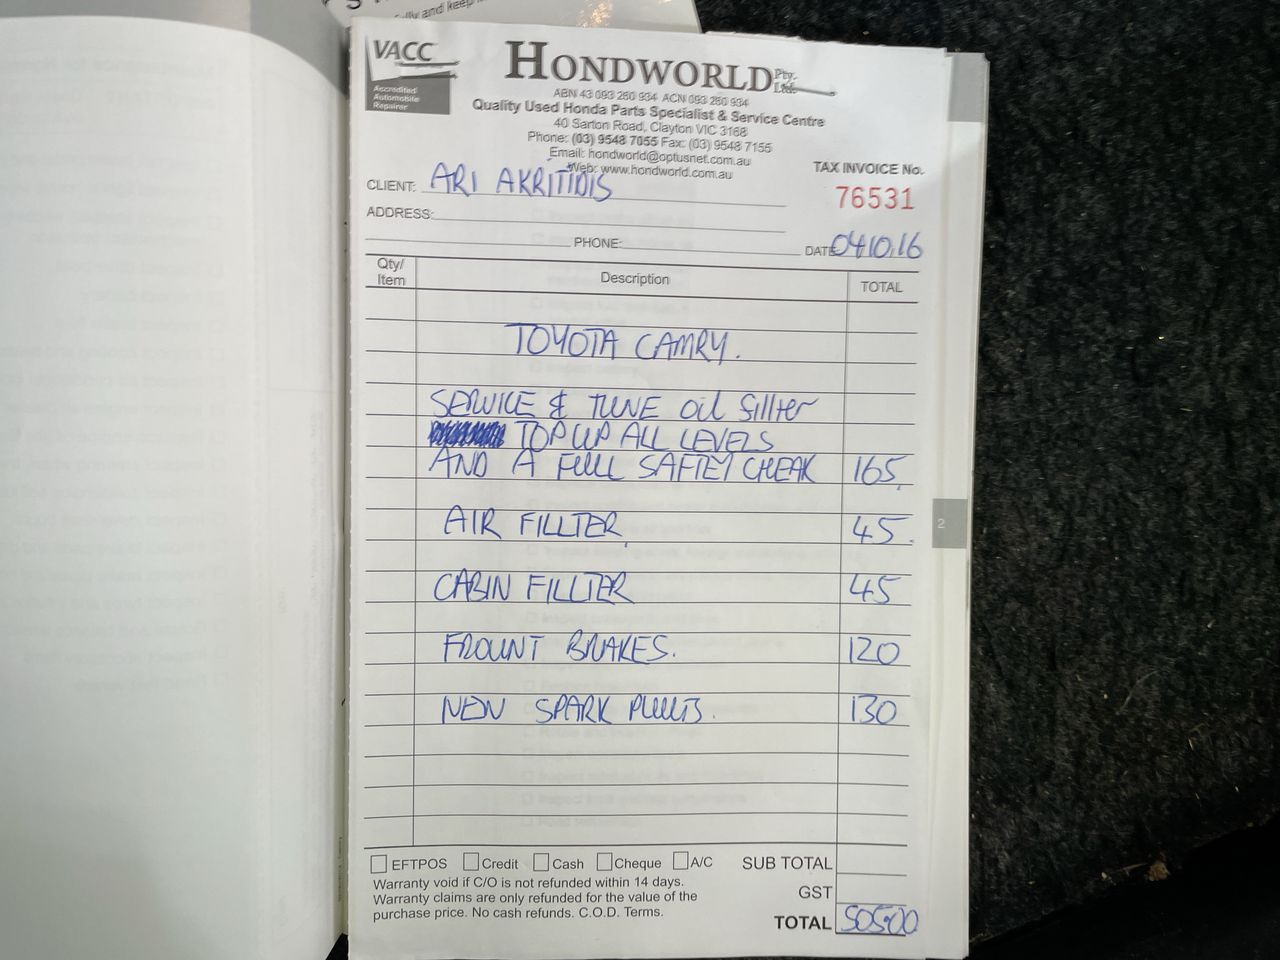 lly and keep
VACC
Accredited
Automobile
Repairer
HONDWORLD Pty. Ltd.
ABN 43 093 260 934 ACN 093 260 934
Quality Used Honda Parts Specialist & Service Centre
40 Sarton Road, Clayton VIC 3168
Phone: (03) 9548 7055 Fax: (03) 9548 7155
Email: hondworld@optusnet.com.au
Web: www.hondworld.com.au
TAX INVOICE No.
76531
CLIENT: ARI AKRITIDIS
ADDRESS:
PHONE: DATE 04.10.16
Qty/ Item Description TOTAL
TOYOTA CAMRY.
SERVICE & TUNE oil fillter
TOP UP ALL LEVELS
AND A FULL SAFTEY CHEAK 165.
AIR FILLTER. 45.
CABIN FILLTER 45
FROUNT BRAKES. 120
NEW SPARK PLUUTS. 130
2
EFTPOS Credit Cash Cheque A/C SUB TOTAL
Warranty void if C/O is not refunded within 14 days.
Warranty claims are only refunded for the value of the
purchase price. No cash refunds. C.O.D. Terms.
GST
TOTAL 505.00